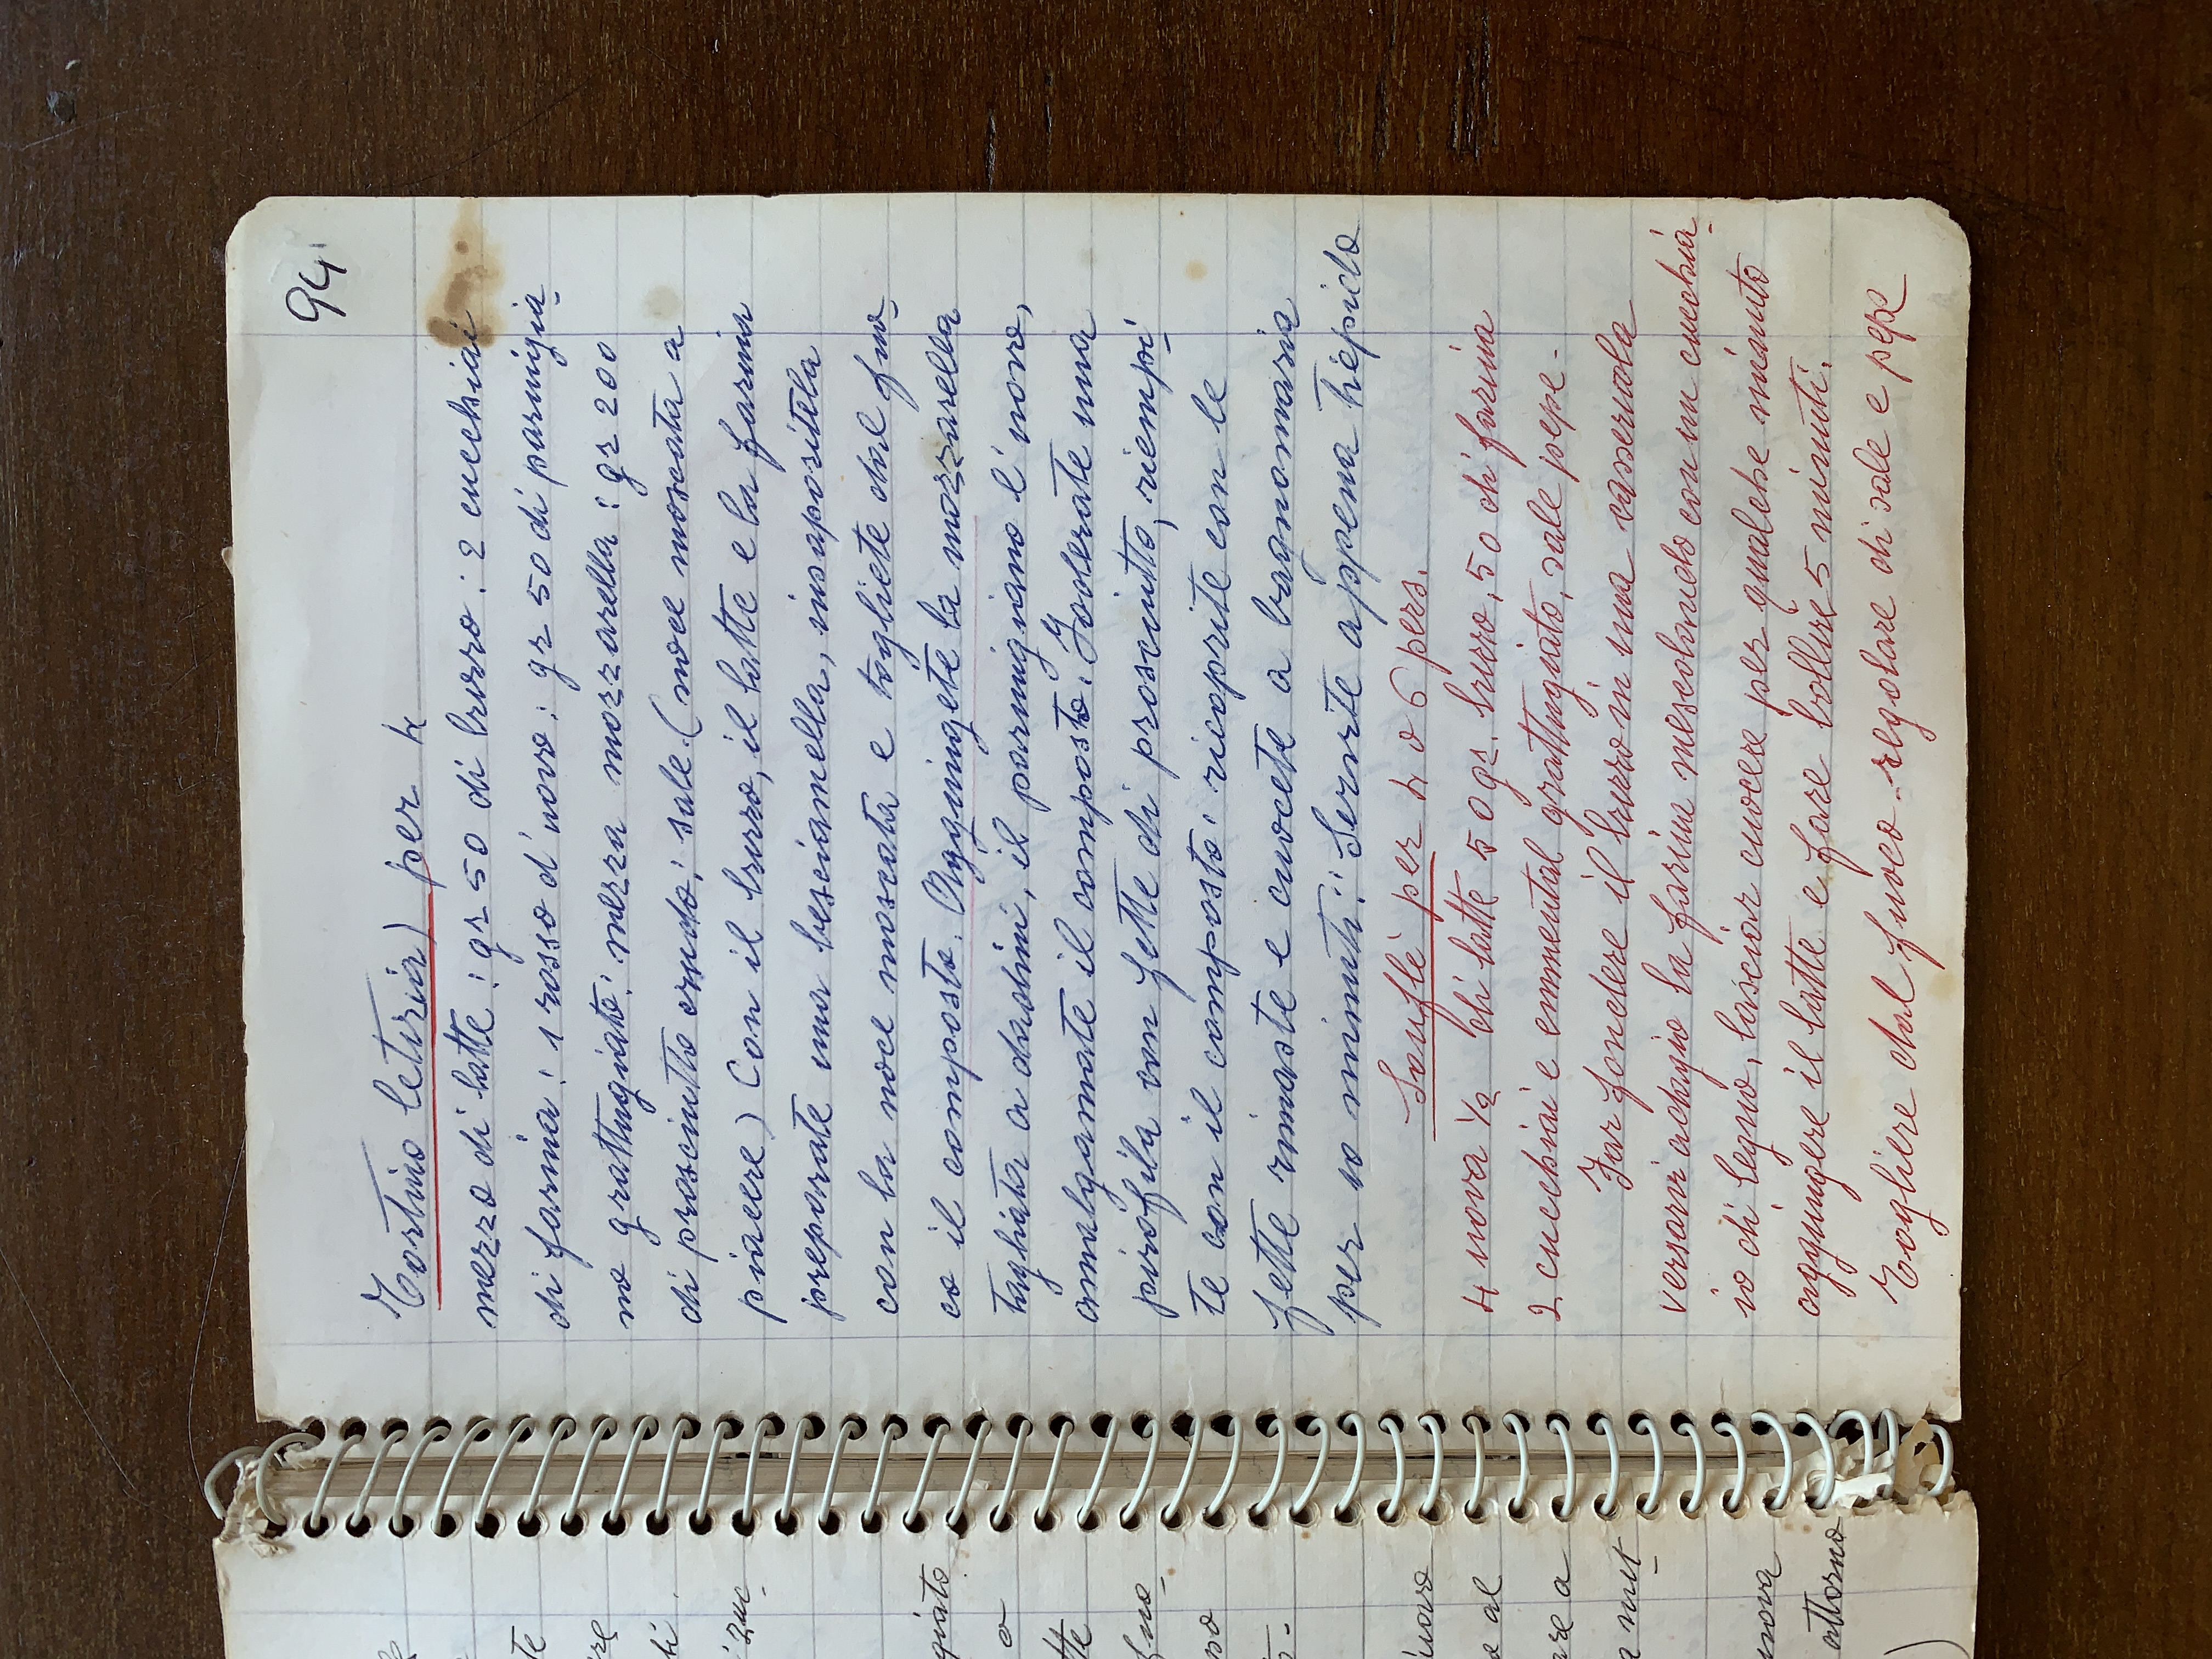 94
Tortino letizia) per 4
mezzo di latte : gr 50 di burro : 2 cucchiai
di farina : 1 rosso d'uovo : gr 50 di parmigia_
no grattugiato: mezza mozzarella : gr 200
di prosciutto crudo: sale. (noce moscata a
piacere) Con il burro, il latte e la farina
preparate una besciamella, insaporitela
con la noce moscata e togliete dal fuo_
co il composto. Aggiungete la mozzarella
tagliata a dadini, il parmigiano l'uovo,
amalgamate il composto. Foderate una
pirofila con fette di prosciutto, riempi_
te con il composto: ricoprite con le
fette rimaste e cuocete a bagnomaria
per 10 minuti: Servite appena tiepido
Souflè per 4 o 6 pers.
4 uova ½ di latte 50 gr. burro, 50 di farina
2 cucchiai e emmental grattugiato, sale pepe -
Far fondere il burro in una casseruola
versarvi adagio la farina mescolando con un cucchia_
io di legno, lasciar cuocere per qualche minuto
aggiungere il latte e fare bollire 5 minuti.
Togliere dal fuoco - regolare di sale e pepe
te
ti.
zuc_
giato
o
tte
fuo_
uovo
al
are a
met_
uova
attorno